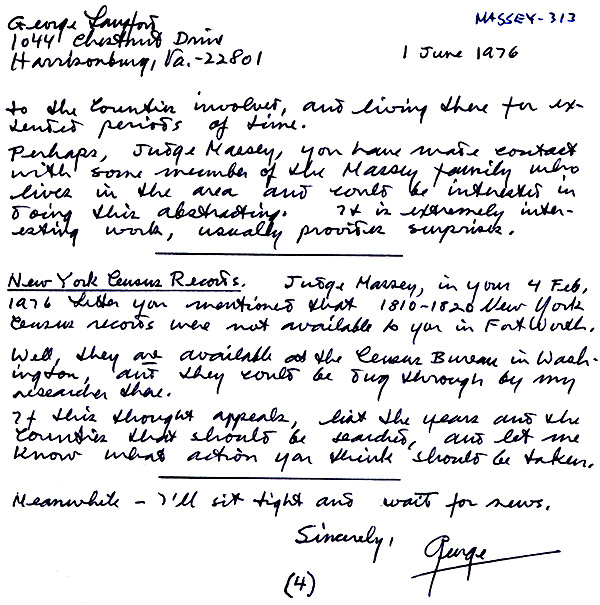 George Langford MASSEY-313
1044 Chestnut Drive
Harrisonburg, Va.-22801 1 June 1976
to the Counties involved, and living there for ex-
tended periods of time.
Perhaps, Judge Massey, you have made contact
with some member of the Massey family who
lives in the area and could be interested in
doing this abstracting. It is extremely inter-
esting work, usually provides surprises.
New York Census Records. Judge Massey, in your 4 Feb.
1976 letter you mentioned that 1810-1820 New York
Census records were not available to you in Fort Worth.
Well, they are available at the Census Bureau in Wash-
ington, and they could be dug through by my
researcher there.
If this thought appeals, list the years and the
Counties that should be searched, and let me
know what action you think should be taken.
Meanwhile - I'll sit tight and wait for news.
Sincerely, George
(4)